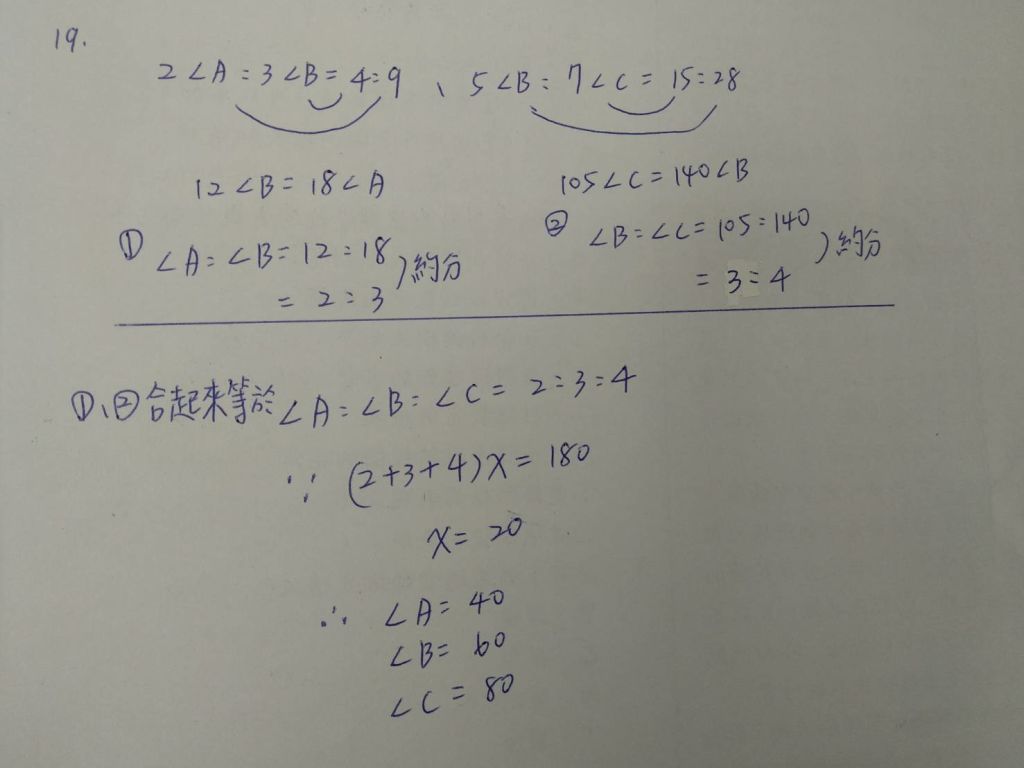 19.
2∠A:3∠B=4:9、5∠B:7∠C=15:28
12∠B=18∠A
105∠C=140∠B
① ∠A:∠B=12:18
=2:3 )約分
② ∠B:∠C=105:140
=3:4 )約分
①、②合起來等於∠A:∠B:∠C=2:3:4
∵ (2+3+4)X=180
X=20
∴ ∠A=40
∠B=60
∠C=80